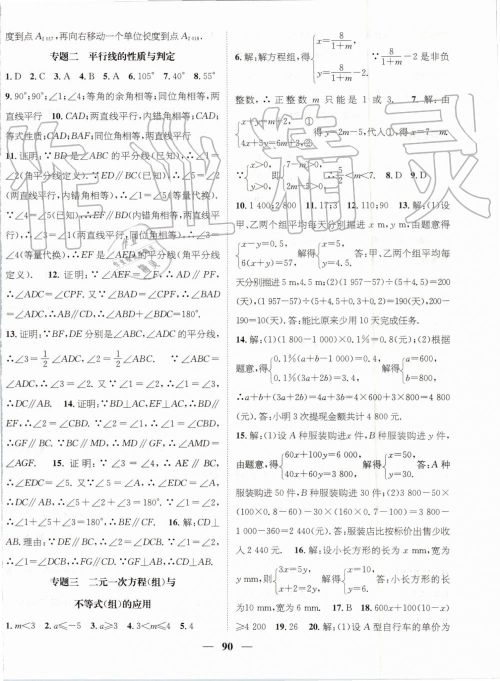 度到点A₂₀₁₇,再向右移动一个单位长度到点A₂₀₁₈.
专题二 平行线的性质与判定
1. D 2. C 3. A 4. B 5. A 6. 105° 7. 40° 8. 55°
9. 90°;90°;∠1;∠4;等角的余角相等;同位角相等,两
直线平行 10. CAD;两直线平行,内错角相等;CAD;
等式性质;CAD;BAF;同位角相等,两直线平行
11. 证明:∵BD是∠ABC的平分线(已知),∴∠1=
∠2(角平分线定义). ∵ED∥BC(已知),∴∠5=∠2
(两直线平行,内错角相等),∴∠1=∠5(等量代换).
∵∠4=∠5(已知),∴EF∥BD(内错角相等,两直线平
行),∴∠3=∠1(两直线平行,同位角相等),∴∠3=
∠4(等量代换),∴EF是∠AED的平分线(角平分线
定义). 12. 证明:∵∠AEF=∠F,∴AD∥PF,
∴∠ADC=∠CPF. 又∵∠BAD=∠CPF,∴∠BAD=
∠ADC,∴AB∥CD,∴∠ABD+∠BDC=180°.
13. 证明:∵BF,DE分别是∠ABC,∠ADC的平分线,
∴∠3=1/2∠ADC,∠2=1/2∠ABC. ∵∠ABC=
∠ADC,∴∠3=∠2. 又∵∠1=∠2,∴∠1=∠3,
∴DC∥AB. 14. 证明:∵BD⊥AC,EF⊥AC,∴BD∥
EF,∴∠2=∠CBD. ∵∠1=∠2,∴∠1=∠CBD,
∴GF∥BC. ∵BC∥MD,∴MD∥GF,∴∠AMD=
∠AGF. 15. 证明:∵∠3=∠4,∴AE∥BC,
∴∠EDC=∠5. ∵∠5=∠A,∴∠EDC=∠A,
∴DC∥AB,∴∠5+∠2+∠3=180°. ∵∠1=∠2,
∴∠1+∠5+∠3=180°. 16. 解:CD⊥
AB. 理由:∵DE∥BC,∴∠1=∠DCB. ∵∠1=
∠2,∴∠2=∠DCB,∴GF∥DC. ∵GF⊥AB,∴CD⊥AB.
专题三 二元一次方程(组)与
不等式(组)的应用
1. m<3 2. a≤-5 3. a≥3 4. 3<m≤4 5. 4
6. 解:解方程组,得{x=8/(1+m), y=8/(1+m). ∵8/(1+m)是非负
整数,∴正整数m只能是1或3. 7. 解:由
10. 1400;2800 11. 17;3 12. 110;90 13. 解:(1)设
甲、乙两个组平均每天分别掘进x m,y m,由题意,得
{x-y=0.5, 6(x+y)=57, 解得{x=5, y=4.5. 答:甲、乙两个组平均每
天分别掘进5 m,4.5 m;(2)(1 957-57)÷(5+4.5)=
200(天),(1 957-57)÷(5+4.5+0.3+0.2)=190(天),200-
190=10(天). 答:能比原来少用10天完成任务.
14. 解:(1)(1 800-1 000)×0.1%=0.8(元);(2)由
题意,得{0.1%(a+b-1 000)=0.3, 0.1%(3a+2b)=3.4, 解得{a=600, b=800.
∴a+b+(3a+2b)=4a+3b=4×600+3×800=4 800
(元). 答:小明3次提现金额共计4 800元.
15. 解:(1)设A种服装购进x件,B种服装购进y件,
由题意,得{60x+100y=6 000, 40x+60y=3 800, 解得{x=50, y=30. 答:A种
服装购进50件,B种服装购进30件;(2)3 800-50×
(100×0.8-60)-30×(160×0.7-100)=3 800-
1 000-360=2 440(元). 答:服装店比按标价出售少收
入2 440元. 16. 解:设小长方形的长为x mm,宽为
y mm,由题意,得{3x=5y, x+2=2y, 解得{x=10, y=6. 答:小长方形的长
为10 mm,宽为6 mm. 17. B 18. 6x+100(10-x)
≥4 200 19. 26 20. 解:(1)设A型自行车的单价为
90